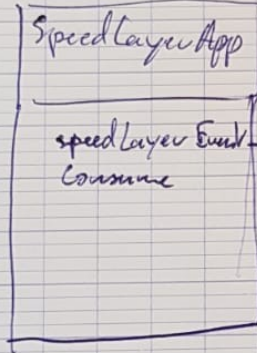 SpeedLayerApp
speedLayer Event
Consume